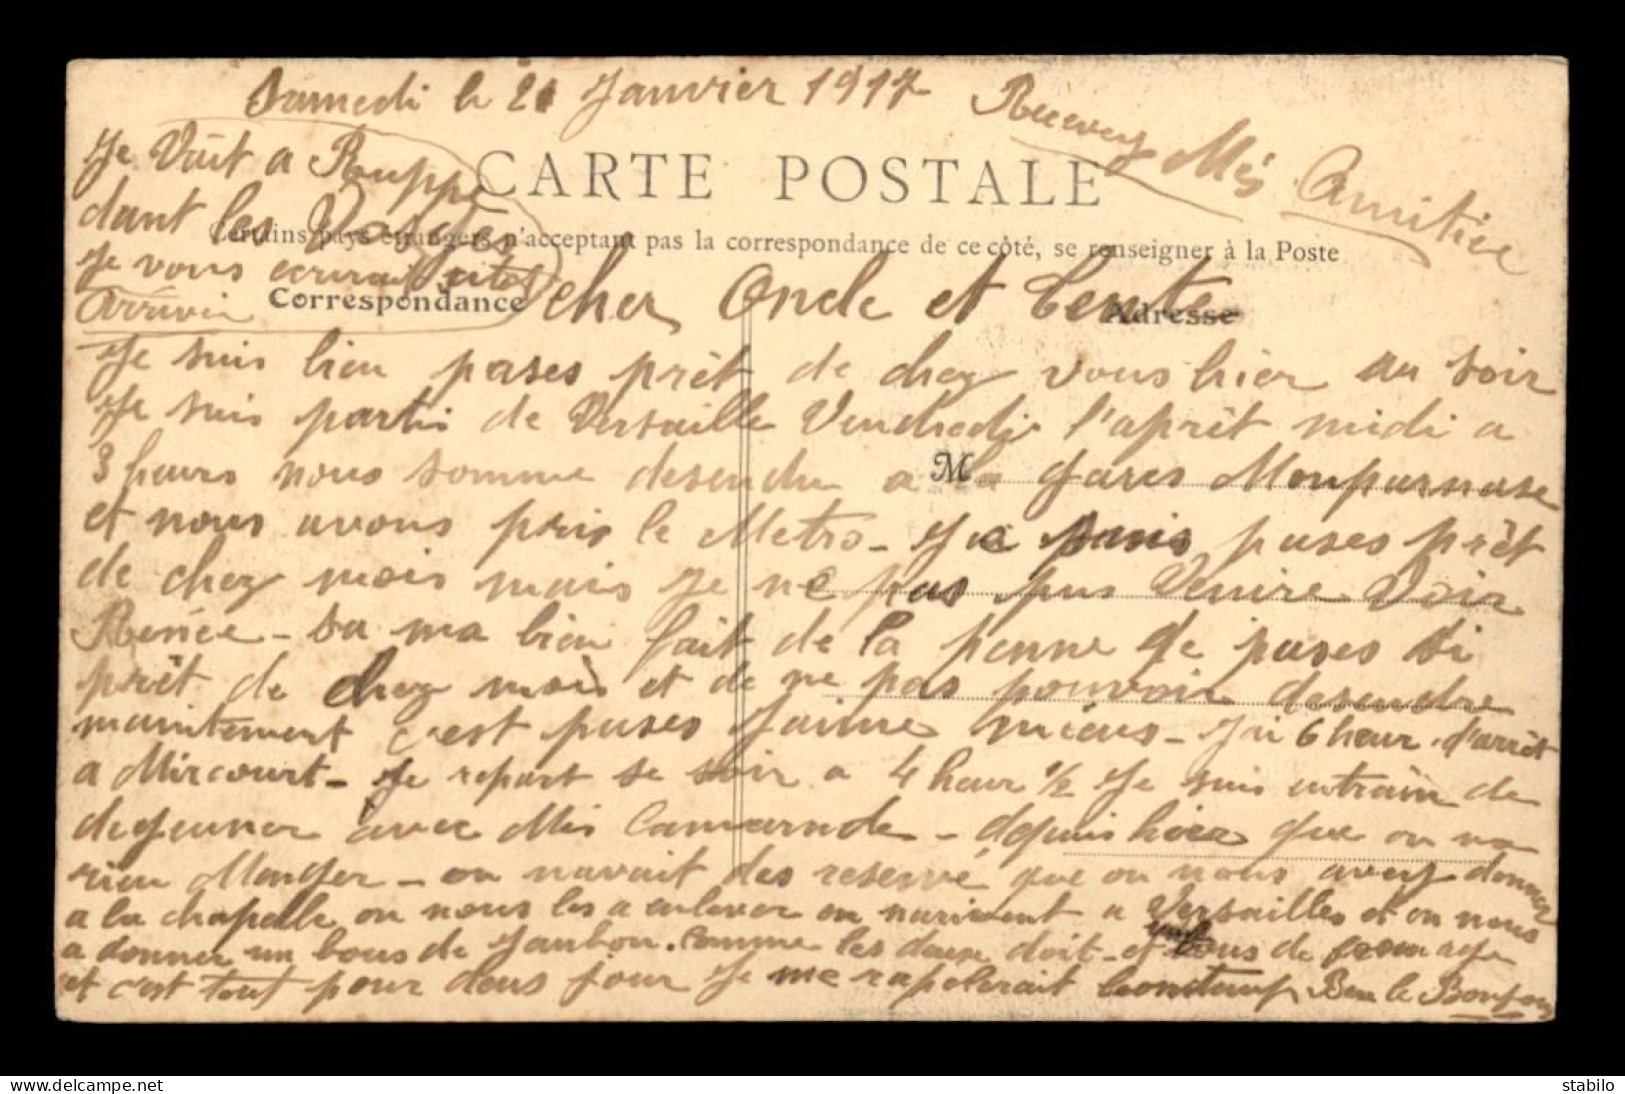 Samedi le 21 Janvier 1917
Recevez Mes Amitiee
Je Vait a Ruppe
dant les Vosges
Je vous ecrirait sitot
Arrivin
CARTE POSTALE
Certains pays étrangers n'acceptant pas la correspondance de ce côté, se renseigner à la Poste
Correspondance
Adresse
cher Oncle et Tente
Je suis bien pases prèt de chez vous hier au soir
Je suis parti de Versaille Vendredi l'aprèt midi a
M
3 heurs nous somme desendu a la gares Monparnase
et nous avons pris le Metro - Je suis pases prèt
de chez mois mais je ne pas pus Venire Voir
Renée - sa ma bien fait de la penne de pases si
prèt de chez mois et de ne pas pouvoir desendre
maintement c'est pases j'aime mieus - J'ai 6 heur d'arrèt
a Mircourt - Je repart se soir a 4 heur 1/2 Je suis entrain de
dejeuner avec Mes Camarade - depuis hier que on na
rien Manger - on navait des reservé que on nous avez donner
a la chapelle on nous les a enlever en arivent a Versailles et on nous
a donner un bous de Janbon. comme les deux doit - et bous de fromage
et c'est tout pour deus jour Je me rapelerait lonctemp Ben le Bonjour